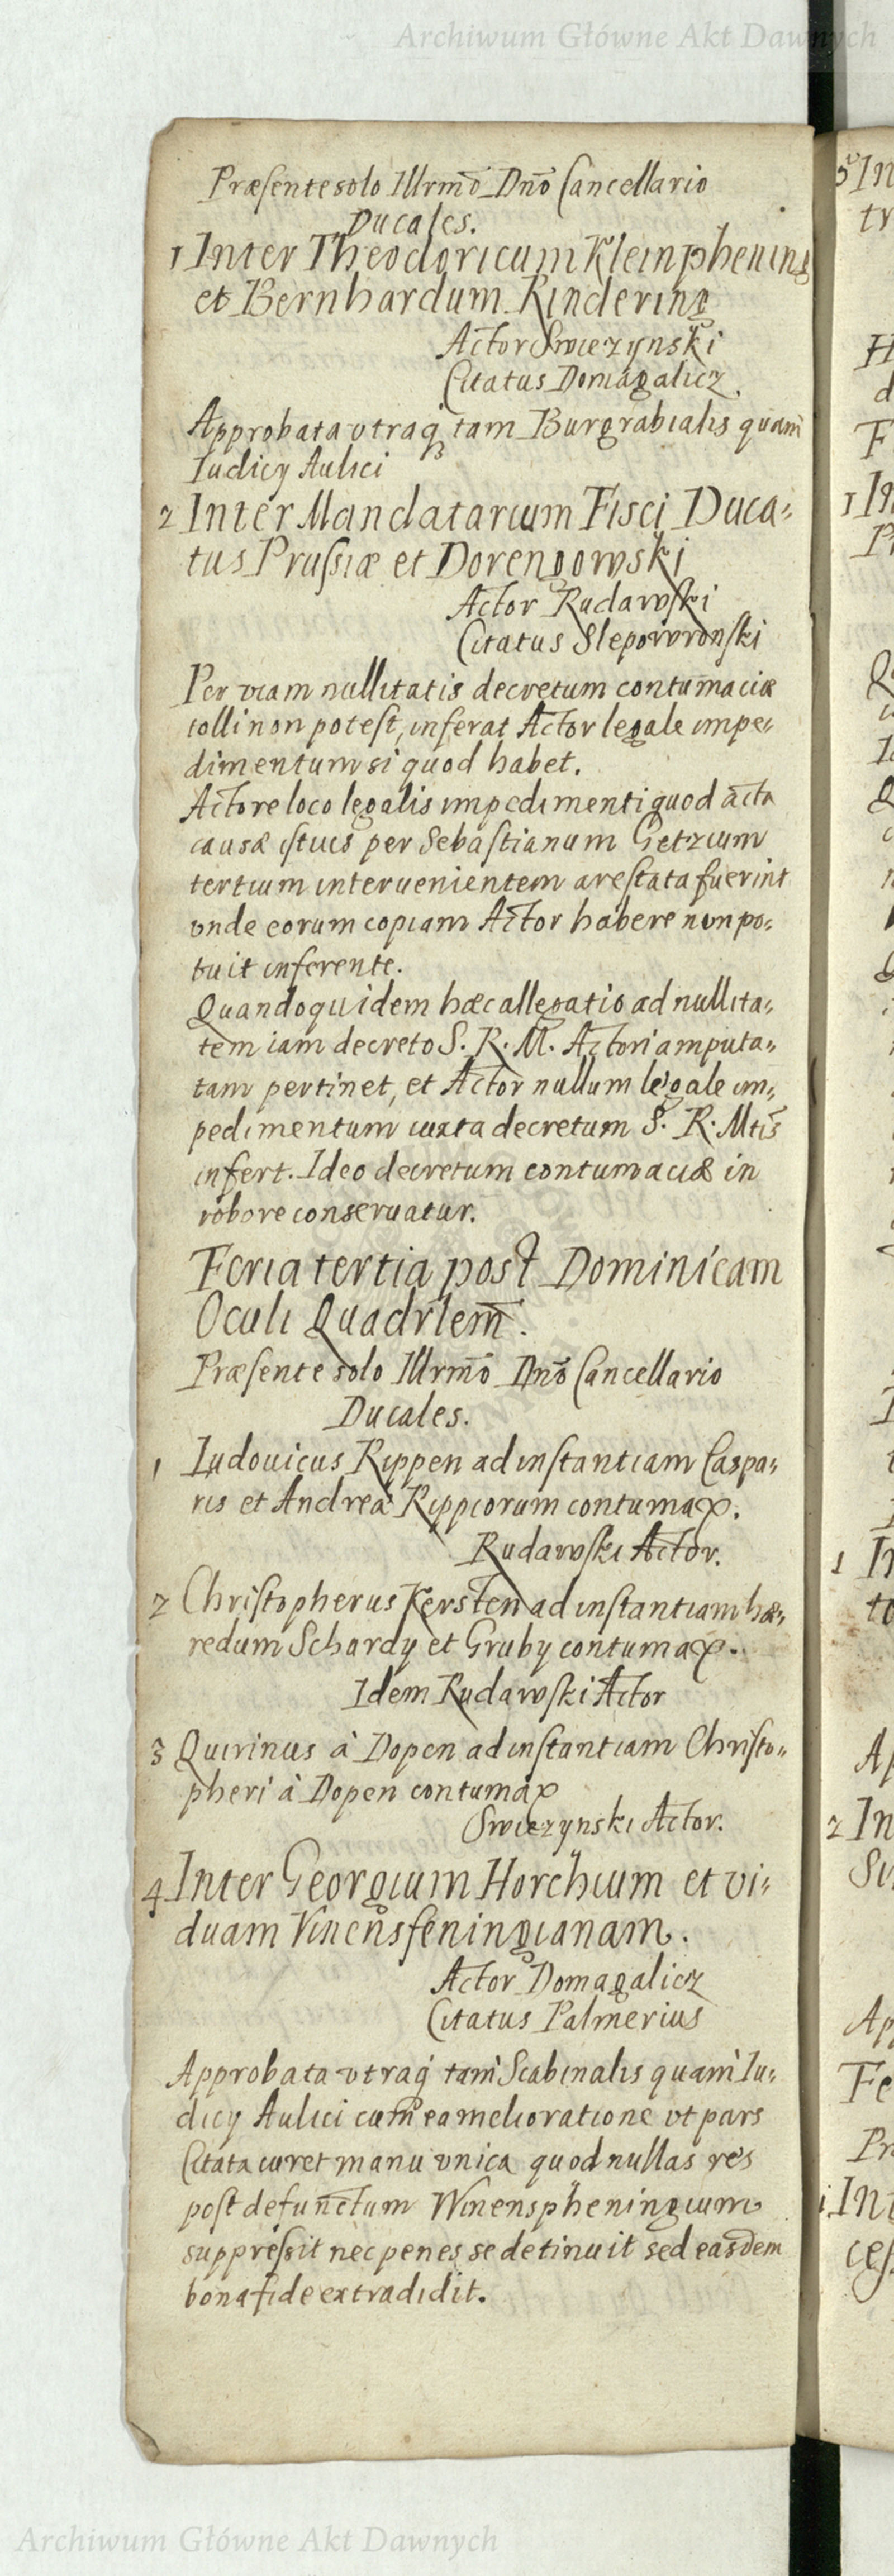 Archiwum Główne Akt Dawnych
Præsente solo Illrmō Dnō Cancellario
Ducales.
1 Inter Theodoricum Kleinphening
et Bernhardum Kindering
Actor Swiezynski
Citatus Domagalicz.
Approbata vtraq tam Burgrabialis quam
Iudicy Aulici
2 Inter Mandatarium Fisci Duca-
tus Prussiæ et Dorengowski
Actor Rudawski
Citatus Slepowronski
Per viam nullitatis decretum contumaciæ
tolli non potest, inferat Actor legale impe-
dimentum si quod habet.
Actore loco legalis impedimenti quod acta
causæ istius per Sebastianum Getzium
tertium interuenientem arestata fuerint
vnde eorum copiam Actor habere non po-
tuit inferente.
Quandoquidem hæc allegatio ad nullita-
tem iam decreto S. R. M. Actori amputa-
tam pertinet, et Actor nullum legale im-
pedimentum iuxta decretum S. R. Mtis
infert. Ideo decretum contumaciæ in
robore conseruatur.
Feria tertia post Dominicam
Oculi Quadrlem̄.
Præsente solo Illrmō Dnō Cancellario
Ducales.
1 Ludouicus Rippen ad instantiam Caspa-
ris et Andreæ Rippiorum contumax.
Rudawski Actor.
2 Christopherus Kersten ad instantiam hæ-
redum Schardy et Gruby contumax.
Idem Rudawski Actor
3 Quirinus à Dopen ad instantiam Christo-
pheri à Dopen contumax
Swiezynski Actor.
4 Inter Georgium Horchium et vi-
duam Vinensfeningianam.
Actor Domagalicz
Citatus Palmerius
Approbata vtraq tam Scabinalis quam Iu-
dicy Aulici cum ea melioratione vt pars
Citata iuret manu vnica quod nullas res
post defunctum Winenspheningium
suppressit nec penes se detinuit sed easdem
bona fide extradidit.
Archiwum Główne Akt Dawnych